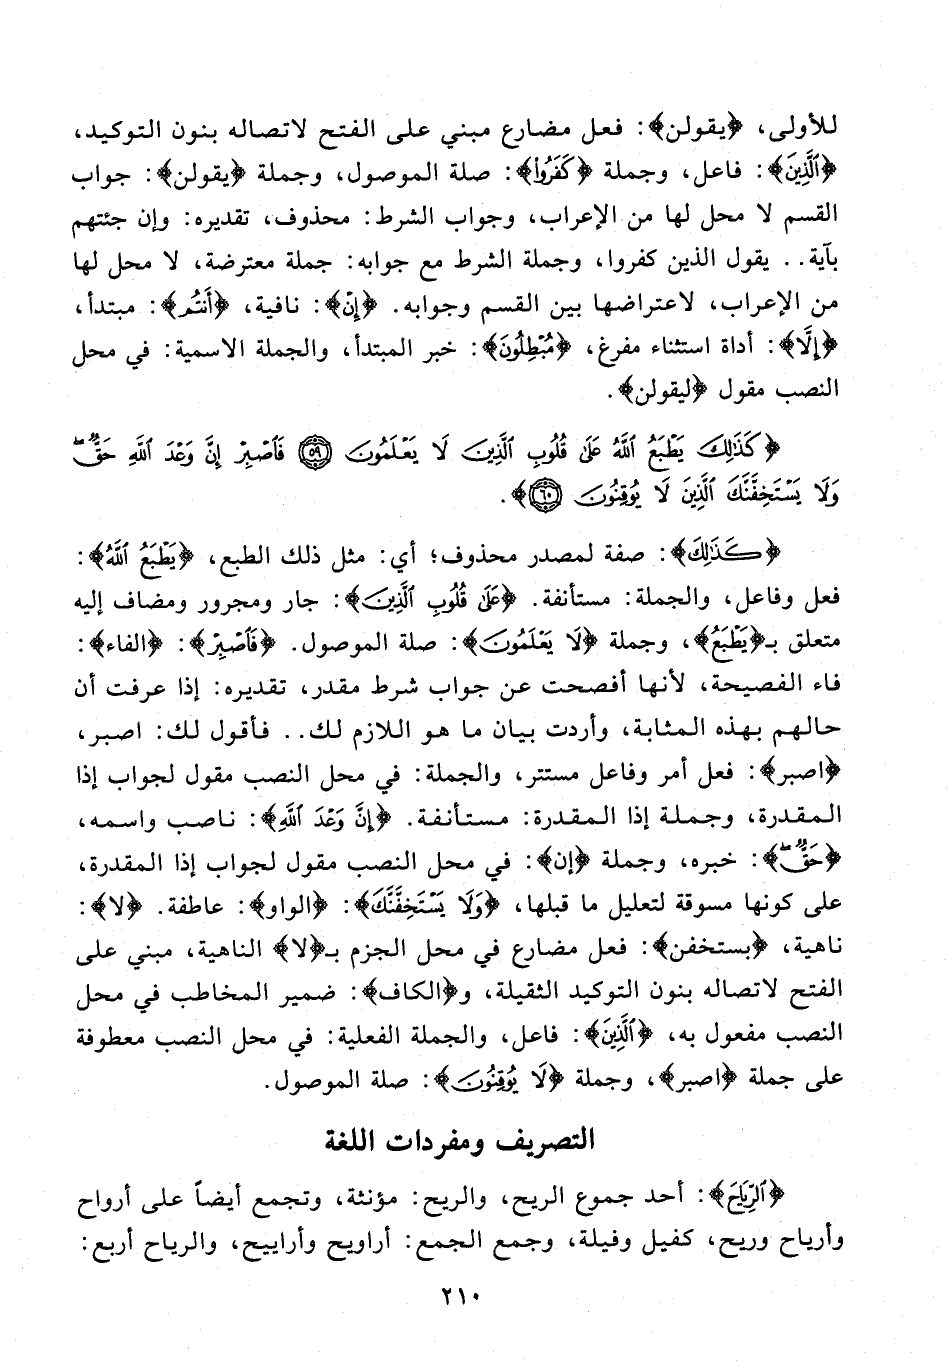 للأولى، ﴿يقولن﴾: فعل مضارع مبني على الفتح لاتصاله بنون التوكيد،
﴿ٱلَّذِينَ﴾: فاعل، وجملة ﴿كَفَرُوا۟﴾: صلة الموصول، وجملة ﴿يقولن﴾: جواب
القسم لا محل لها من الإعراب، وجواب الشرط: محذوف، تقديره: وإن جئتهم
بآية.. يقول الذين كفروا، وجملة الشرط مع جوابه: جملة معترضة، لا محل لها
من الإعراب، لاعتراضها بين القسم وجوابه. ﴿إِنْ﴾: نافية، ﴿أَنتُمْ﴾: مبتدأ،
﴿إِلَّا﴾: أداة استثناء مفرغ، ﴿مُبْطِلُونَ﴾: خبر المبتدأ، والجملة الاسمية: في محل
النصب مقول ﴿ليقولن﴾.
﴿كَذَٰلِكَ يَطْبَعُ ٱللَّهُ عَلَىٰ قُلُوبِ ٱلَّذِينَ لَا يَعْلَمُونَ ٥٩ فَٱصْبِرْ إِنَّ وَعْدَ ٱللَّهِ حَقٌّ ۖ
وَلَا يَسْتَخِفَّنَّكَ ٱلَّذِينَ لَا يُوقِنُونَ ٦٠﴾.
﴿كَذَٰلِكَ﴾: صفة لمصدر محذوف؛ أي: مثل ذلك الطبع، ﴿يَطْبَعُ ٱللَّهُ﴾:
فعل وفاعل، والجملة: مستأنفة. ﴿عَلَىٰ قُلُوبِ ٱلَّذِينَ﴾: جار ومجرور ومضاف إليه
متعلق بـ﴿يَطْبَعُ﴾، وجملة ﴿لَا يَعْلَمُونَ﴾: صلة الموصول. ﴿فَٱصْبِرْ﴾: ﴿الفاء﴾:
فاء الفصيحة، لأنها أفصحت عن جواب شرط مقدر، تقديره: إذا عرفت أن
حالهم بهذه المثابة، وأردت بيان ما هو اللازم لك.. فأقول لك: اصبر،
﴿اصبر﴾: فعل أمر وفاعل مستتر، والجملة: في محل النصب مقول لجواب إذا
المقدرة، وجملة إذا المقدرة: مستأنفة. ﴿إِنَّ وَعْدَ ٱللَّهِ﴾: ناصب واسمه،
﴿حَقٌّ ۖ﴾: خبره، وجملة ﴿إن﴾: في محل النصب مقول لجواب إذا المقدرة،
على كونها مسوقة لتعليل ما قبلها، ﴿وَلَا يَسْتَخِفَّنَّكَ﴾: ﴿الواو﴾: عاطفة. ﴿لا﴾:
ناهية، ﴿يستخفن﴾: فعل مضارع في محل الجزم بـ﴿لا﴾ الناهية، مبني على
الفتح لاتصاله بنون التوكيد الثقيلة، و﴿الكاف﴾: ضمير المخاطب في محل
النصب مفعول به، ﴿ٱلَّذِينَ﴾: فاعل، والجملة الفعلية: في محل النصب معطوفة
على جملة ﴿اصبر﴾، وجملة ﴿لَا يُوقِنُونَ﴾: صلة الموصول.
التصريف ومفردات اللغة
﴿ٱلرِّيَاحَ﴾: أحد جموع الريح، والريح: مؤنثة، وتجمع أيضاً على أرواح
وأرياح وريح، كفيل وفيلة، وجمع الجمع: أراويح وأراييح، والرياح أربع:
٢١٠